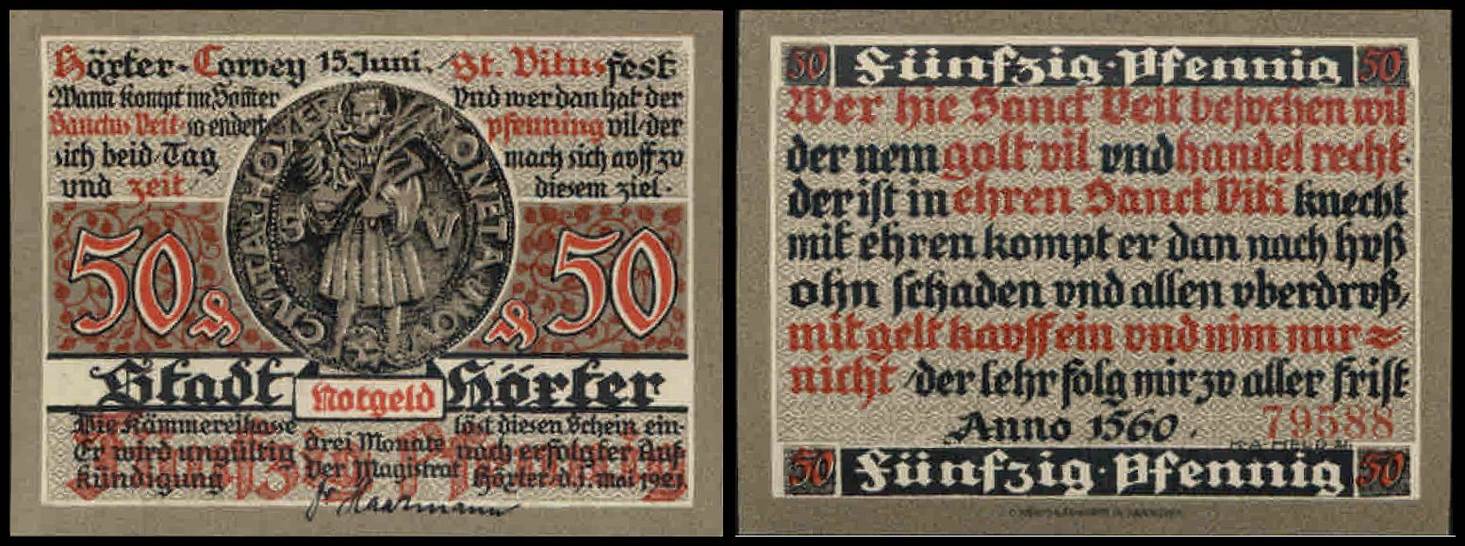 Höxter-Corvey 15 Juni. St. Vitusfest
Wann kompt im Som̄er
Sanctus Veit so endert
sich beid Tag
vnd zeit
Vnd wer dan hat der
pfenning vil der
mach sich auff zu
diesem ziel.
MONETA NO
CIVITA HO
S V
50 ₰
₰ 50
Stadt Höxter
Notgeld
Fünfzig Pfennig
Die Kämmereikasse löst diesen Schein ein.
Er wird ungültig drei Monate nach erfolgter Auf-
kündigung Der Magistrat Höxter d. 1. Mai 1921
Haarmann
50 Fünfzig·Pfennig 50
Wer hie Sanct Veit besvchen wil
der nem golt vil vnd handel recht.
der ist in ehren Sanct Viti knecht
mit ehren kompt er dan nach hvß
ohn schaden vnd allen vberdrvß,
mit gelt kavff ein vnd nim nur
nicht der lehr folg mir zv aller frist.
Anno 1560.
79588
50 Fünfzig·Pfennig 50